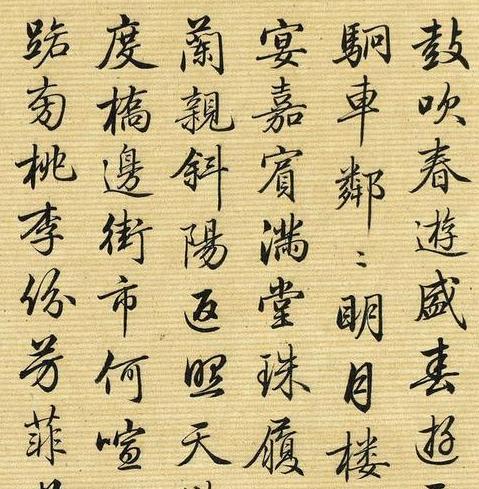 鼓吹春遊盛春遊
駉車鄰〻明月楼
宴嘉賓满堂珠履
蘭親斜陽返照天
度橋邊街市何喧
桃李份芳菲